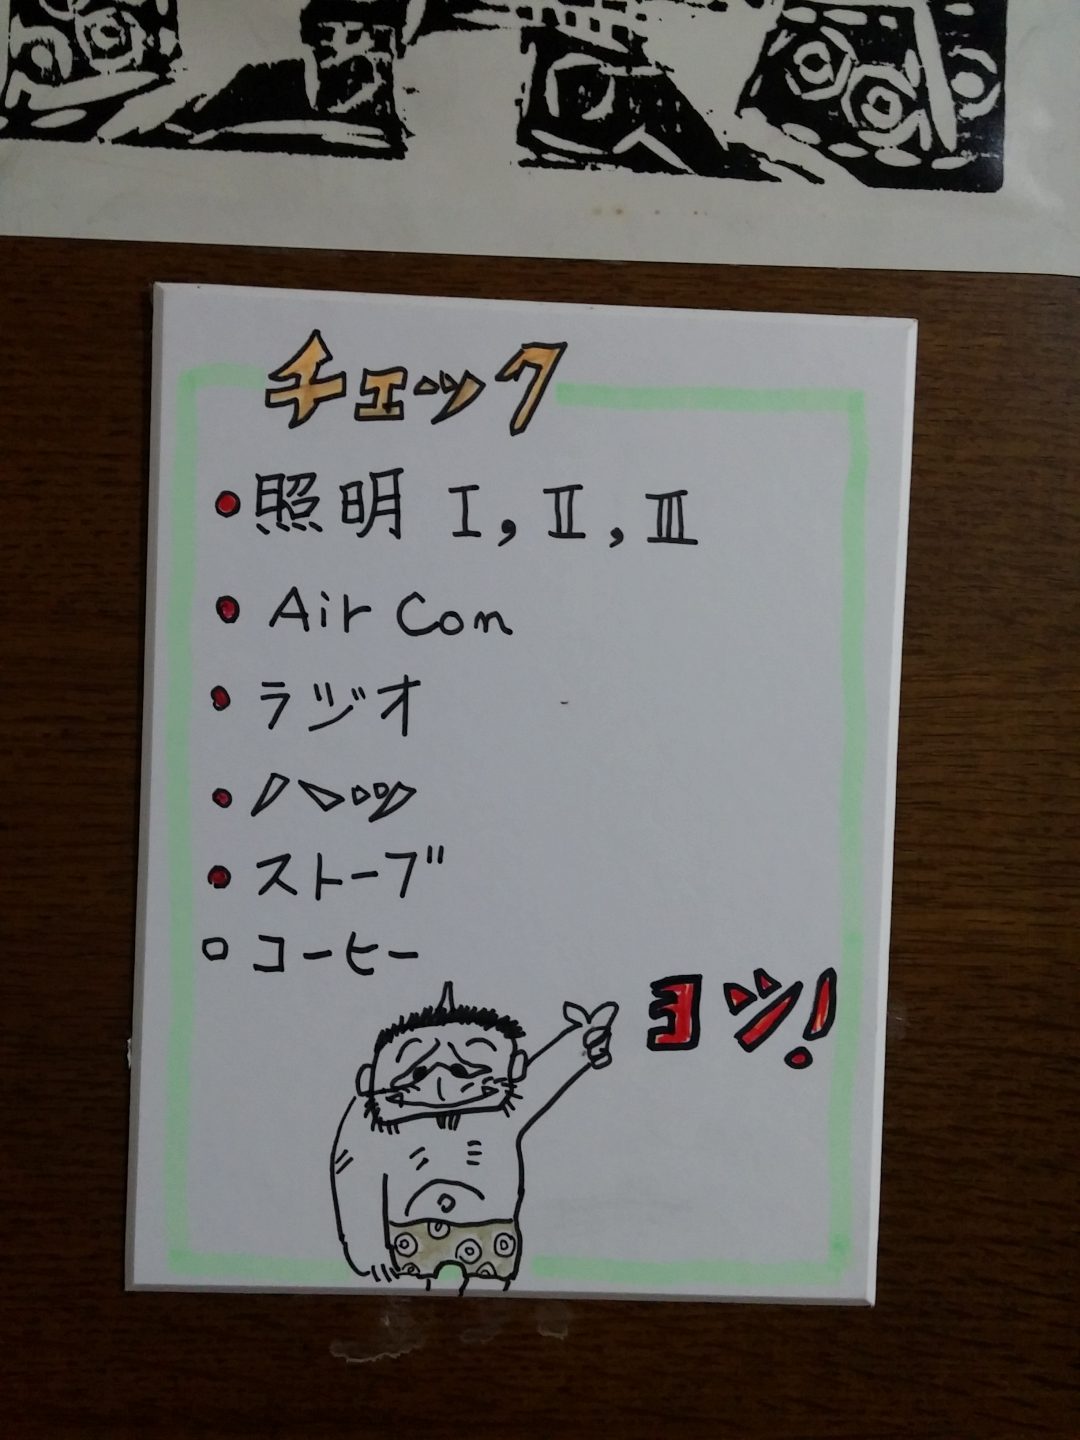 チェック
• 照明 Ⅰ, Ⅱ, Ⅲ
• Air Con
• ラジオ
• ハツ
• ストーブ
□ コーヒー
ヨシ!